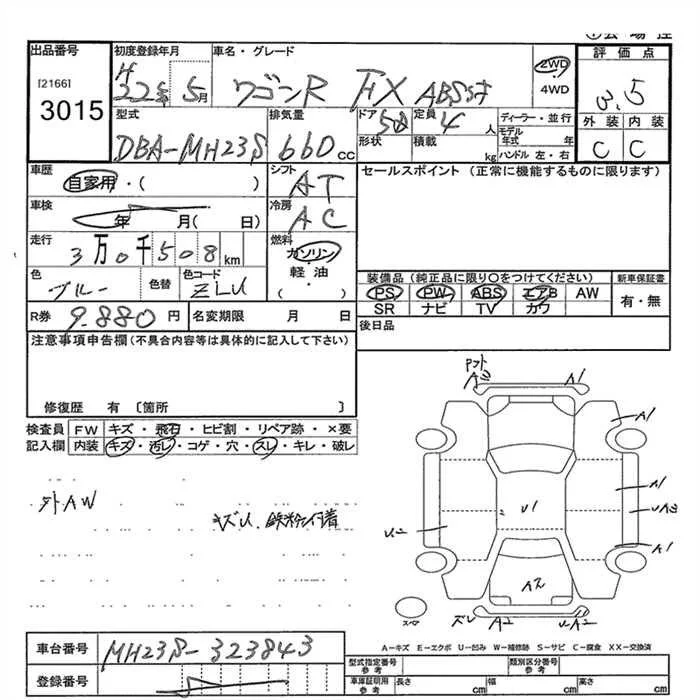 出品番号
[2166]
3015
初度登録年月
H 22年 5月
車名・グレード
ワゴンR FX ABS付
2WD
4WD
評価点
3.5
外装 内装
C C
型式
DBA-MH23S
排気量
660cc
ドア 5D
形状
定員 4人
積載 kg
ディーラー・並行
モデル年式 年
ハンドル 左・右
車歴
自家用・( )
シフト
AT
セールスポイント (正常に機能するものに限ります)
車検
年 月( 日)
冷房
AC
走行
3万0千508km
燃料
ガソリン
軽・油
・( )
色
ブルー
色替
色コード
ZLU
装備品 (純正品に限り○をつけてください)
PS PW ABS エアB AW
SR ナビ TV カワ
新車保証書
有・無
R券 9.880円
名変期限 月 日
後日品
注意事項申告欄 (不具合内容等は具体的に記入して下さい)
修復歴 有 〔箇所 〕
検査員記入欄
FW キズ・飛石・ヒビ割・リペア跡・×要
内装 キズ・汚レ・コゲ・穴・スレ・キレ・破レ
外AW
キズU、鉄粉付着
A1
A1
A1
U1
U2
A1
A2
A2
スペア
車台番号
MH23S-323843
登録番号
A-キズ E-エクボ U-凹み W-補修跡 S-サビ C-腐食 XX-交換済
型式指定番号 参考
類別区分番号 参考
車庫証明用 参考
長さ cm
幅 cm
高さ cm